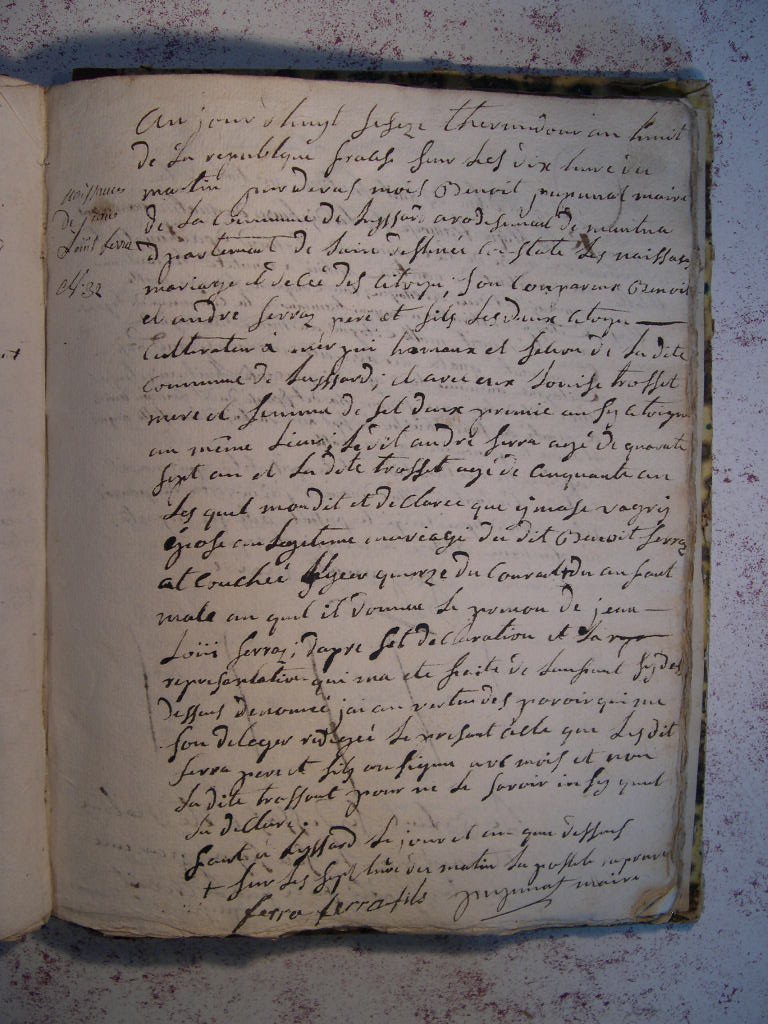 naissance
de jean
Louis ferra
N° 32
Au jour d huyt seseze thermidour an huit
de la republique frase sur les dix heure du
matin par devant mois Benoit maire
de la commune de Lussard arodisemant de mantua
dpartement de destinée constate les naissans
mariage et décé des citoyen, son conparaux Benoit
et andre ferraz pere et fils les deux citoyen
cultivateur à et de la dite
commune de Lussard, et avec eux Louise trosset
mere et femme de set deux premie citoyen
au même lieux, le dit andre ferra agé de quarante
sept an et la dite trosset agé de cinquante an
les quel mon dit et declaree que
epose an legetime mariage du dit Benoit ferraz
at couchée yer quenze du courant du anfant
male au quel il donnene le prenon de jean
Loiii ferraz, dapre set declaration et la
represantation qui ma ete faite de lanfant sy des
dessus denomé jai an vertu des povoir qui me
son deleger redigée le presant acte que les dit
ferra pere et fils on signe avec mois et non
la dite trossent pour ne le savoir in sy quel
la dellare.
fait à Lussard le jour et an que dessus
+ sur les sept heure du matin la postile
ferra ferra fils maire